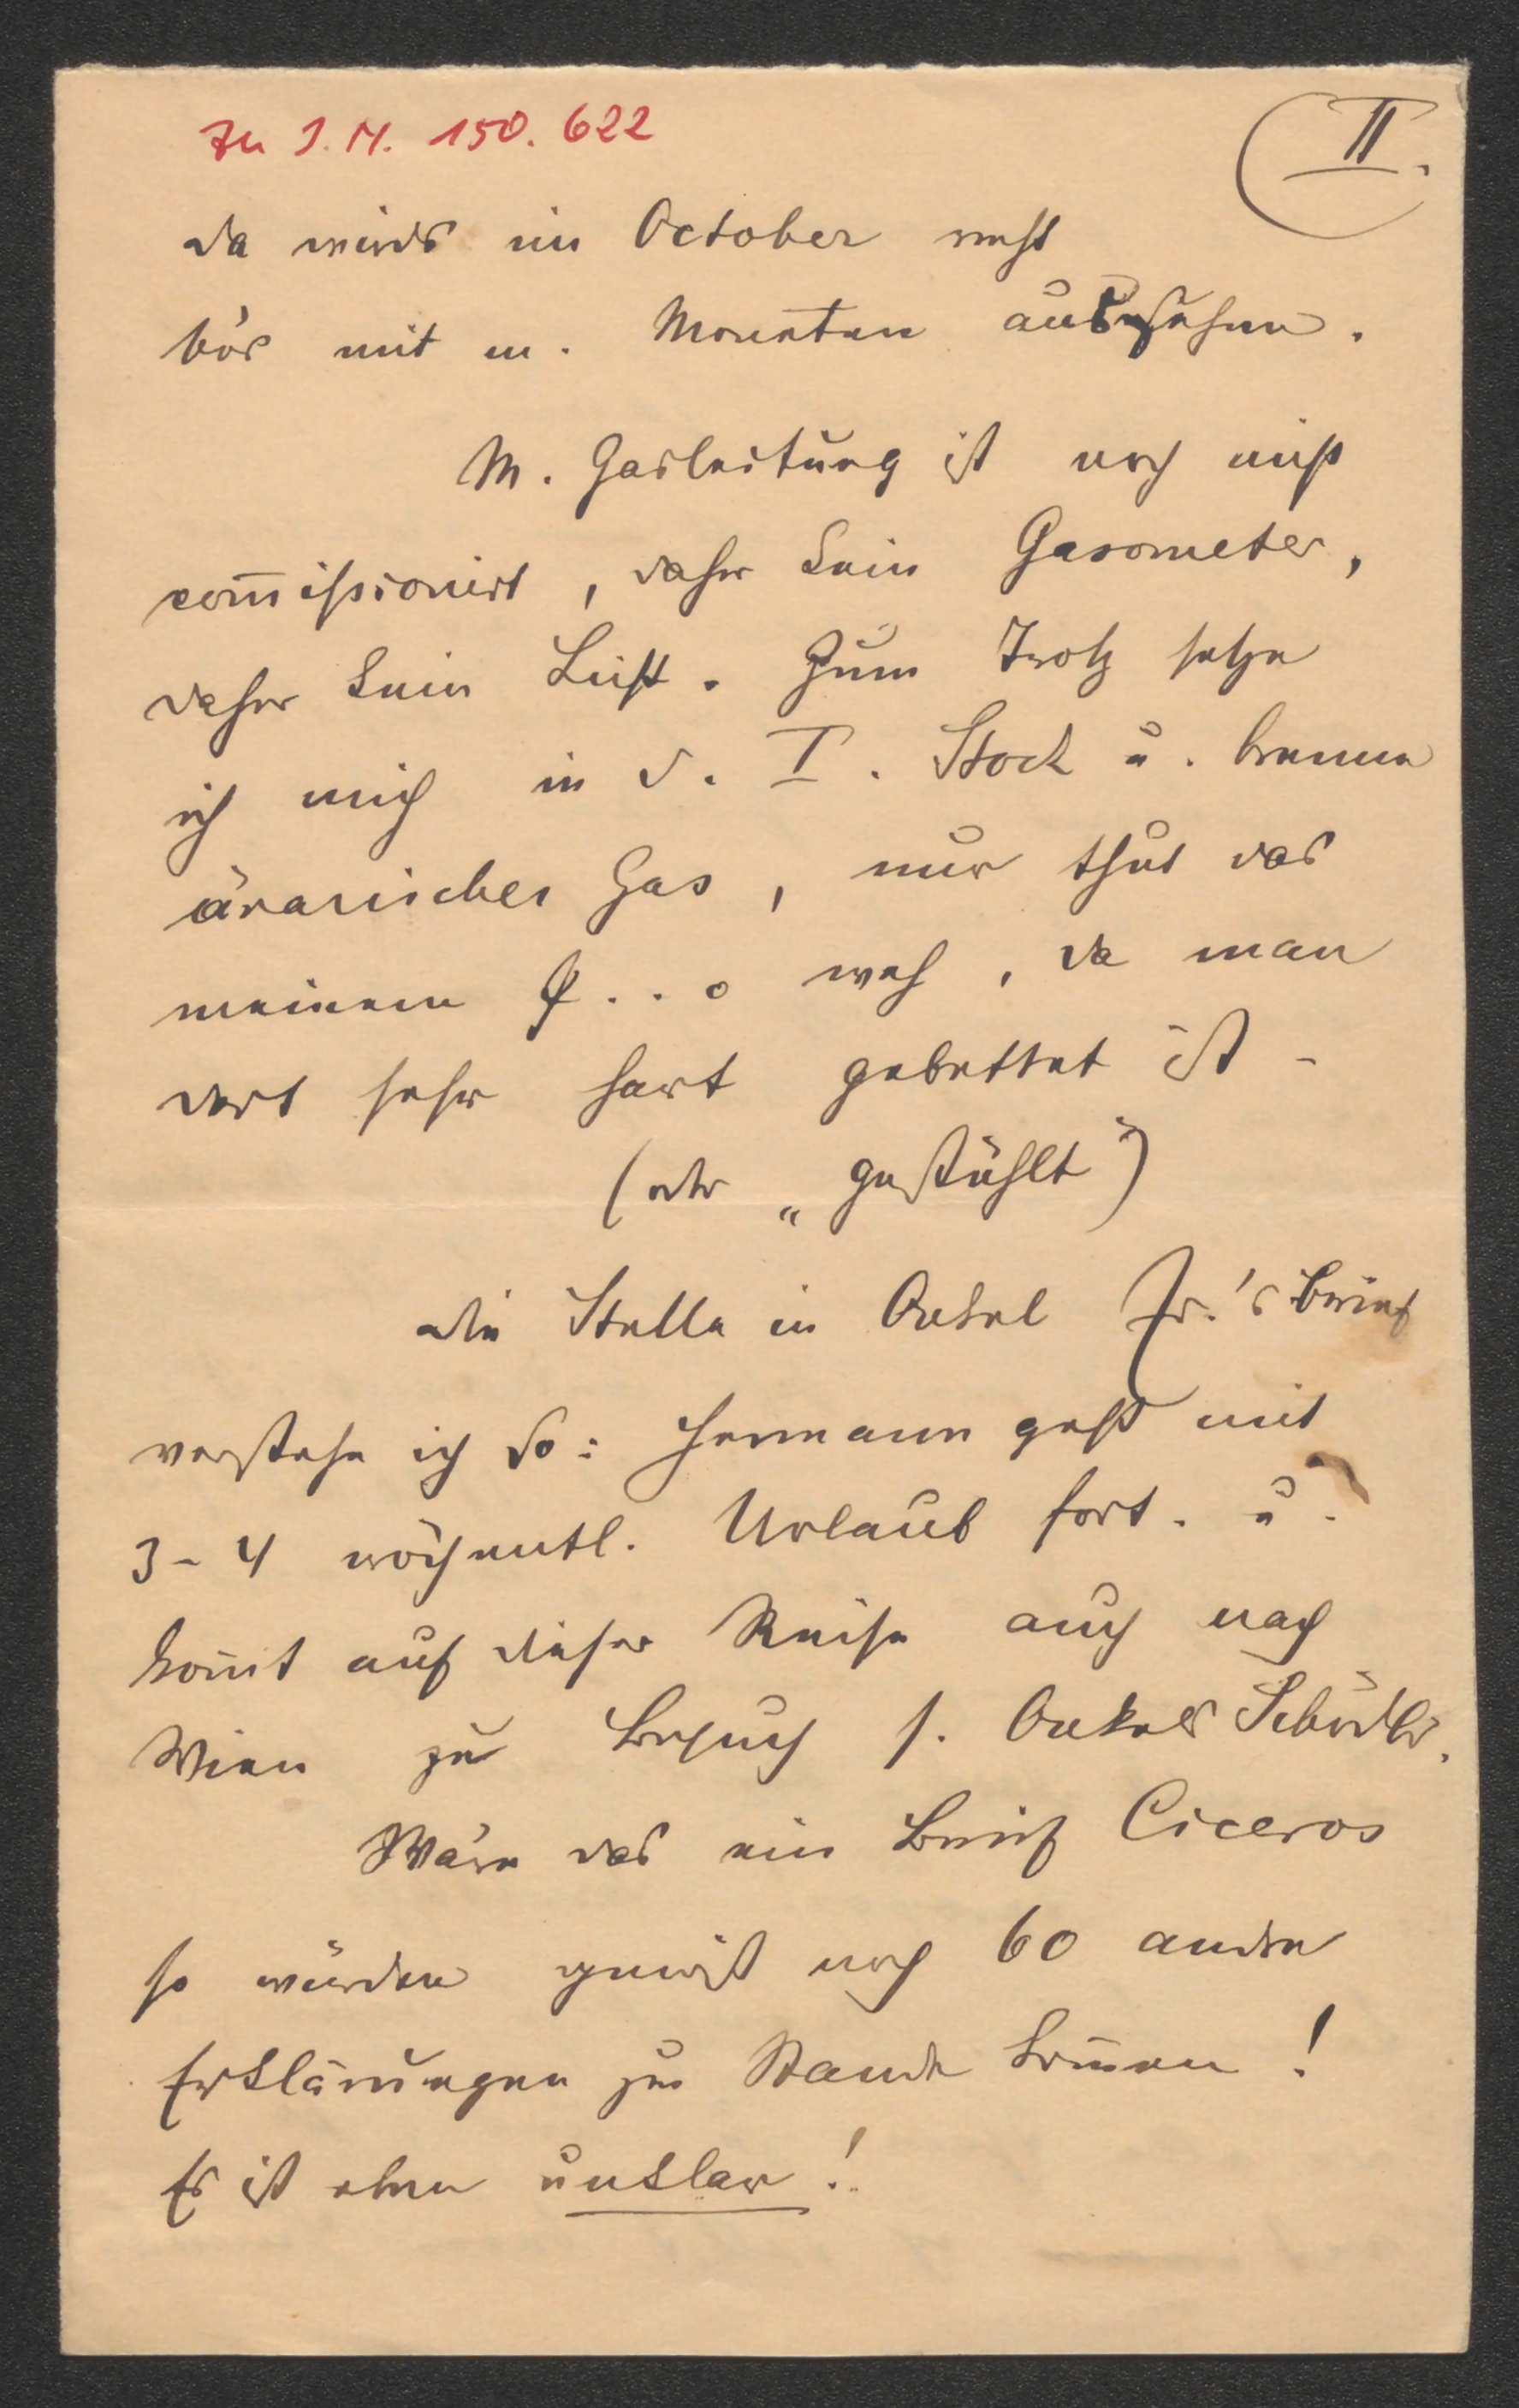 Zu I.N. 150.622
II.
da wirds im October recht
bös mit m. Moneten aussehen.
M. Gasleitung ist noch nicht
com̄issionirt, daher kein Gasometer,
daher kein Licht. Zum Trotz setze
ich mich in d. I. Stock u. brenne
ärarisches Gas, nur thut das
meinem P..o weh, da man
dort sehr hart gebettet ist -
(oder „gestühlt")
Die Stelle in Onkel Fr.'s Brief
verstehe ich so: Hermann geht mit
3-4 wöchentl. Urlaub fort. u.
kom̄t auf dieser Reise auch nach
Wien zu Besuch s. Onkels
Wäre das ein Brief Ciceros
so würden gewiß noch 60 andre
Erklärungen zu Stande kom̄en!
Es ist eben unklar!